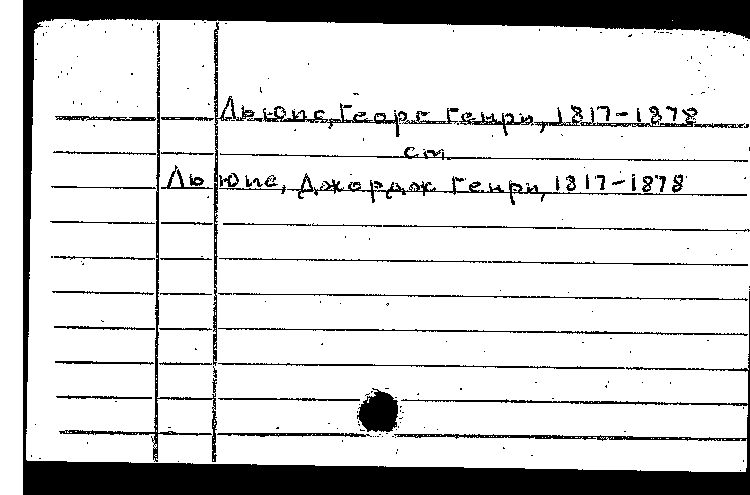 Льюис, Георг Генри, 1817-1878
см
Льюис, Джордж Генри, 1817-1878